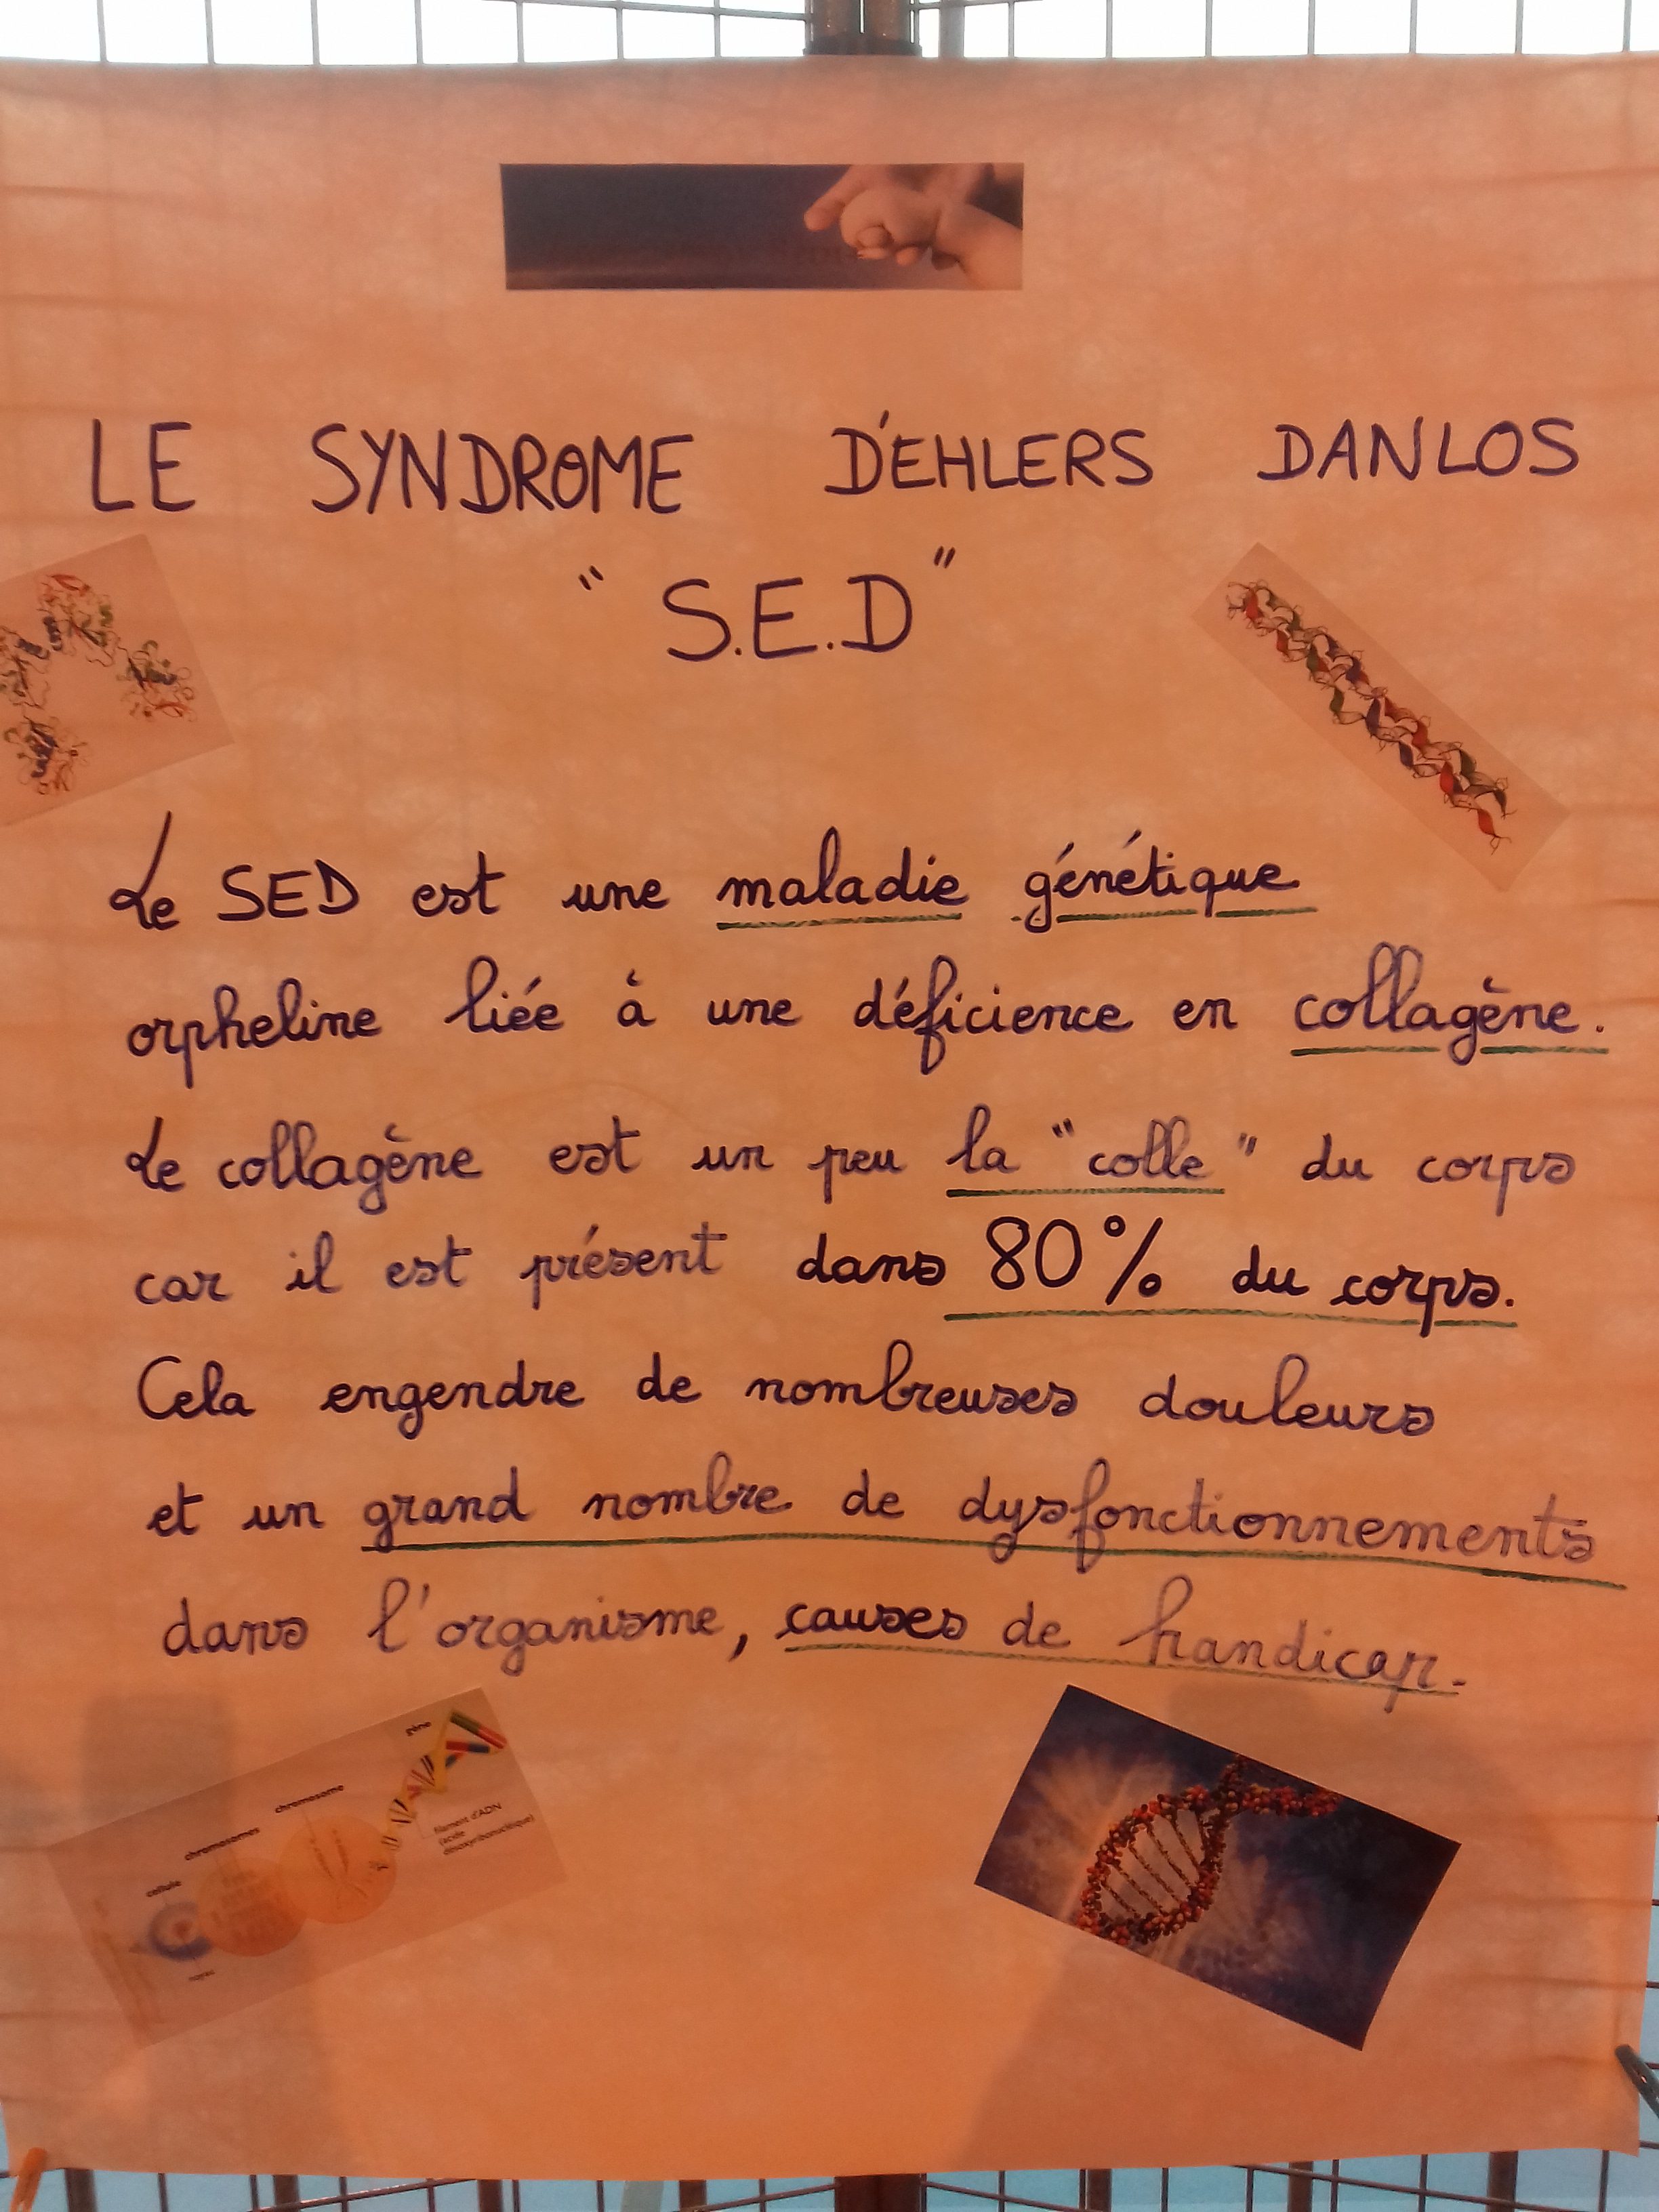 LE SYNDROME D'EHLERS DANLOS
"S.E.D"
Le SED est une maladie génétique
orpheline liée à une déficience en collagène.
Le collagène est un peu la "colle" du corps
car il est présent dans 80% du corps.
Cela engendre de nombreuses douleurs
et un grand nombre de dysfonctionnements
dans l'organisme, causes de handicap.
gène
chromosome
chromosomes
cellule
filament d'ADN
(acide
désoxyribonucléique)